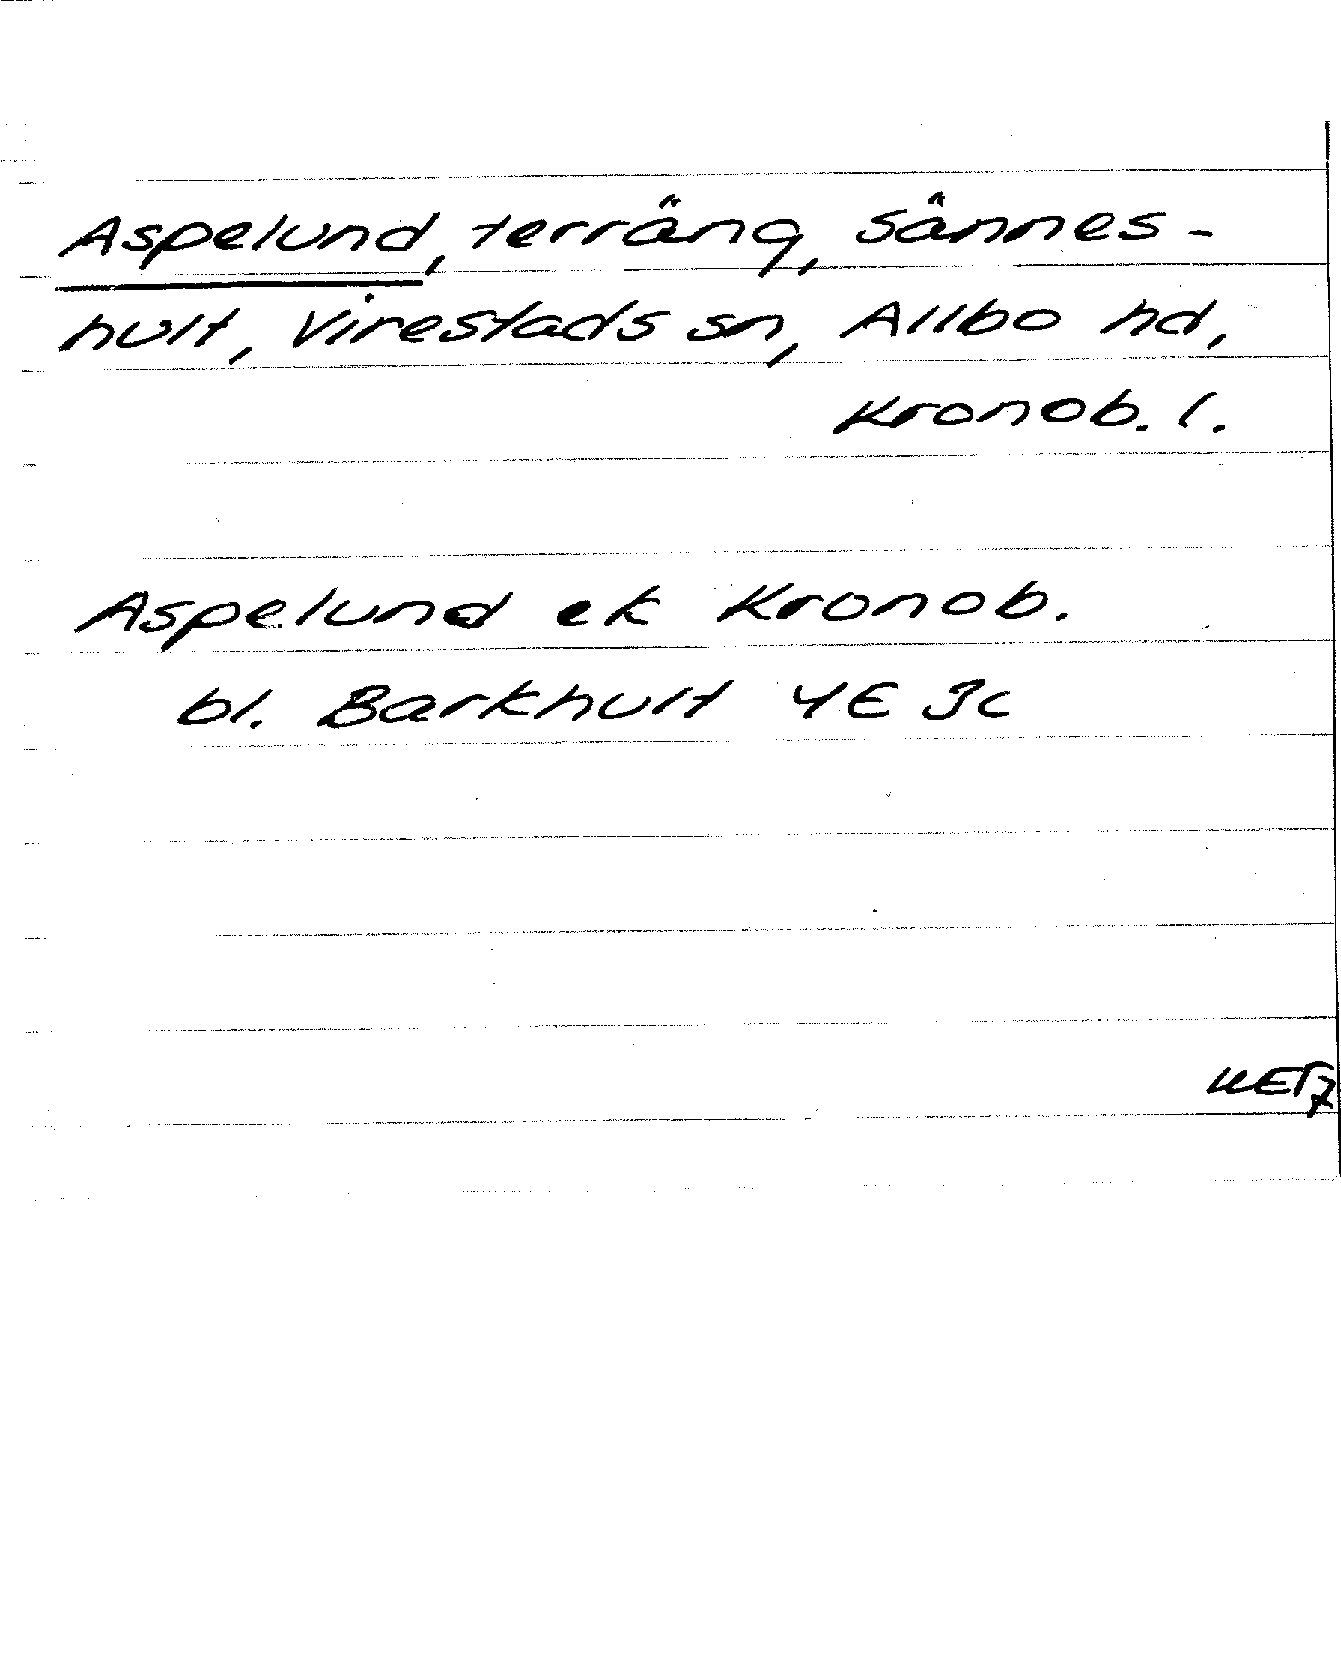 Aspelund, terräng, Sännes-
hult, Virestads sn, Allbo hd,
Kronob. l.
Aspelund ek Kronob.
bl. Barkhult 4E 3c